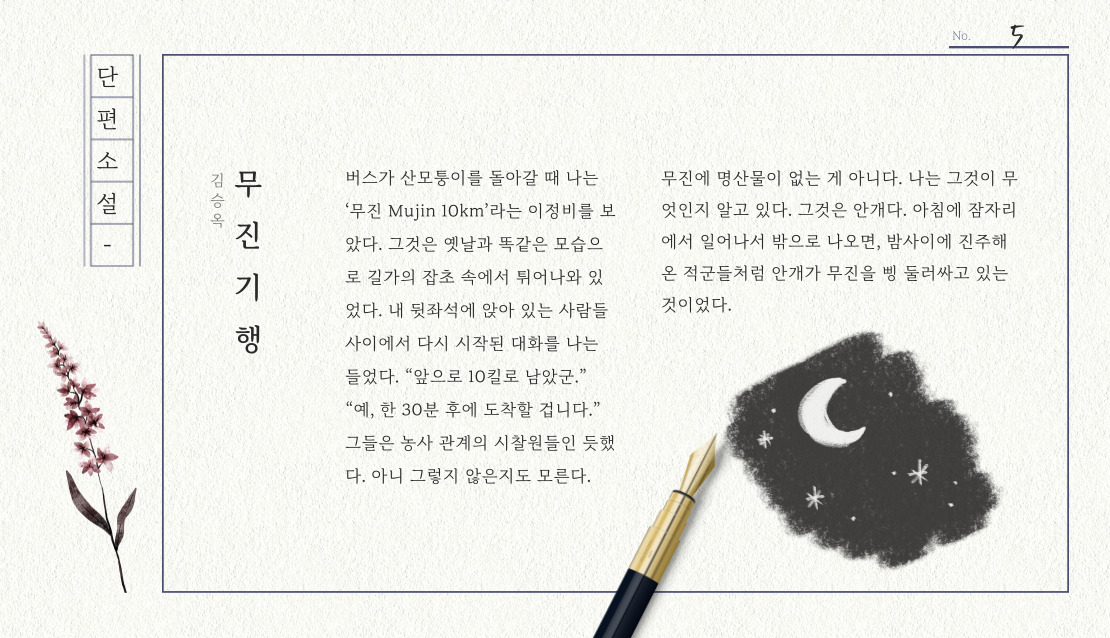 No. 5
단편소설-
무진기행
김승옥
버스가 산모퉁이를 돌아갈 때 나는
‘무진 Mujin 10km’라는 이정비를 보
았다. 그것은 옛날과 똑같은 모습으
로 길가의 잡초 속에서 튀어나와 있
었다. 내 뒷좌석에 앉아 있는 사람들
사이에서 다시 시작된 대화를 나는
들었다. “앞으로 10킬로 남았군.”
“예, 한 30분 후에 도착할 겁니다.”
그들은 농사 관계의 시찰원들인 듯했
다. 아니 그렇지 않은지도 모른다.
무진에 명산물이 없는 게 아니다. 나는 그것이 무
엇인지 알고 있다. 그것은 안개다. 아침에 잠자리
에서 일어나서 밖으로 나오면, 밤사이에 진주해
온 적군들처럼 안개가 무진을 삥 둘러싸고 있는
것이었다.